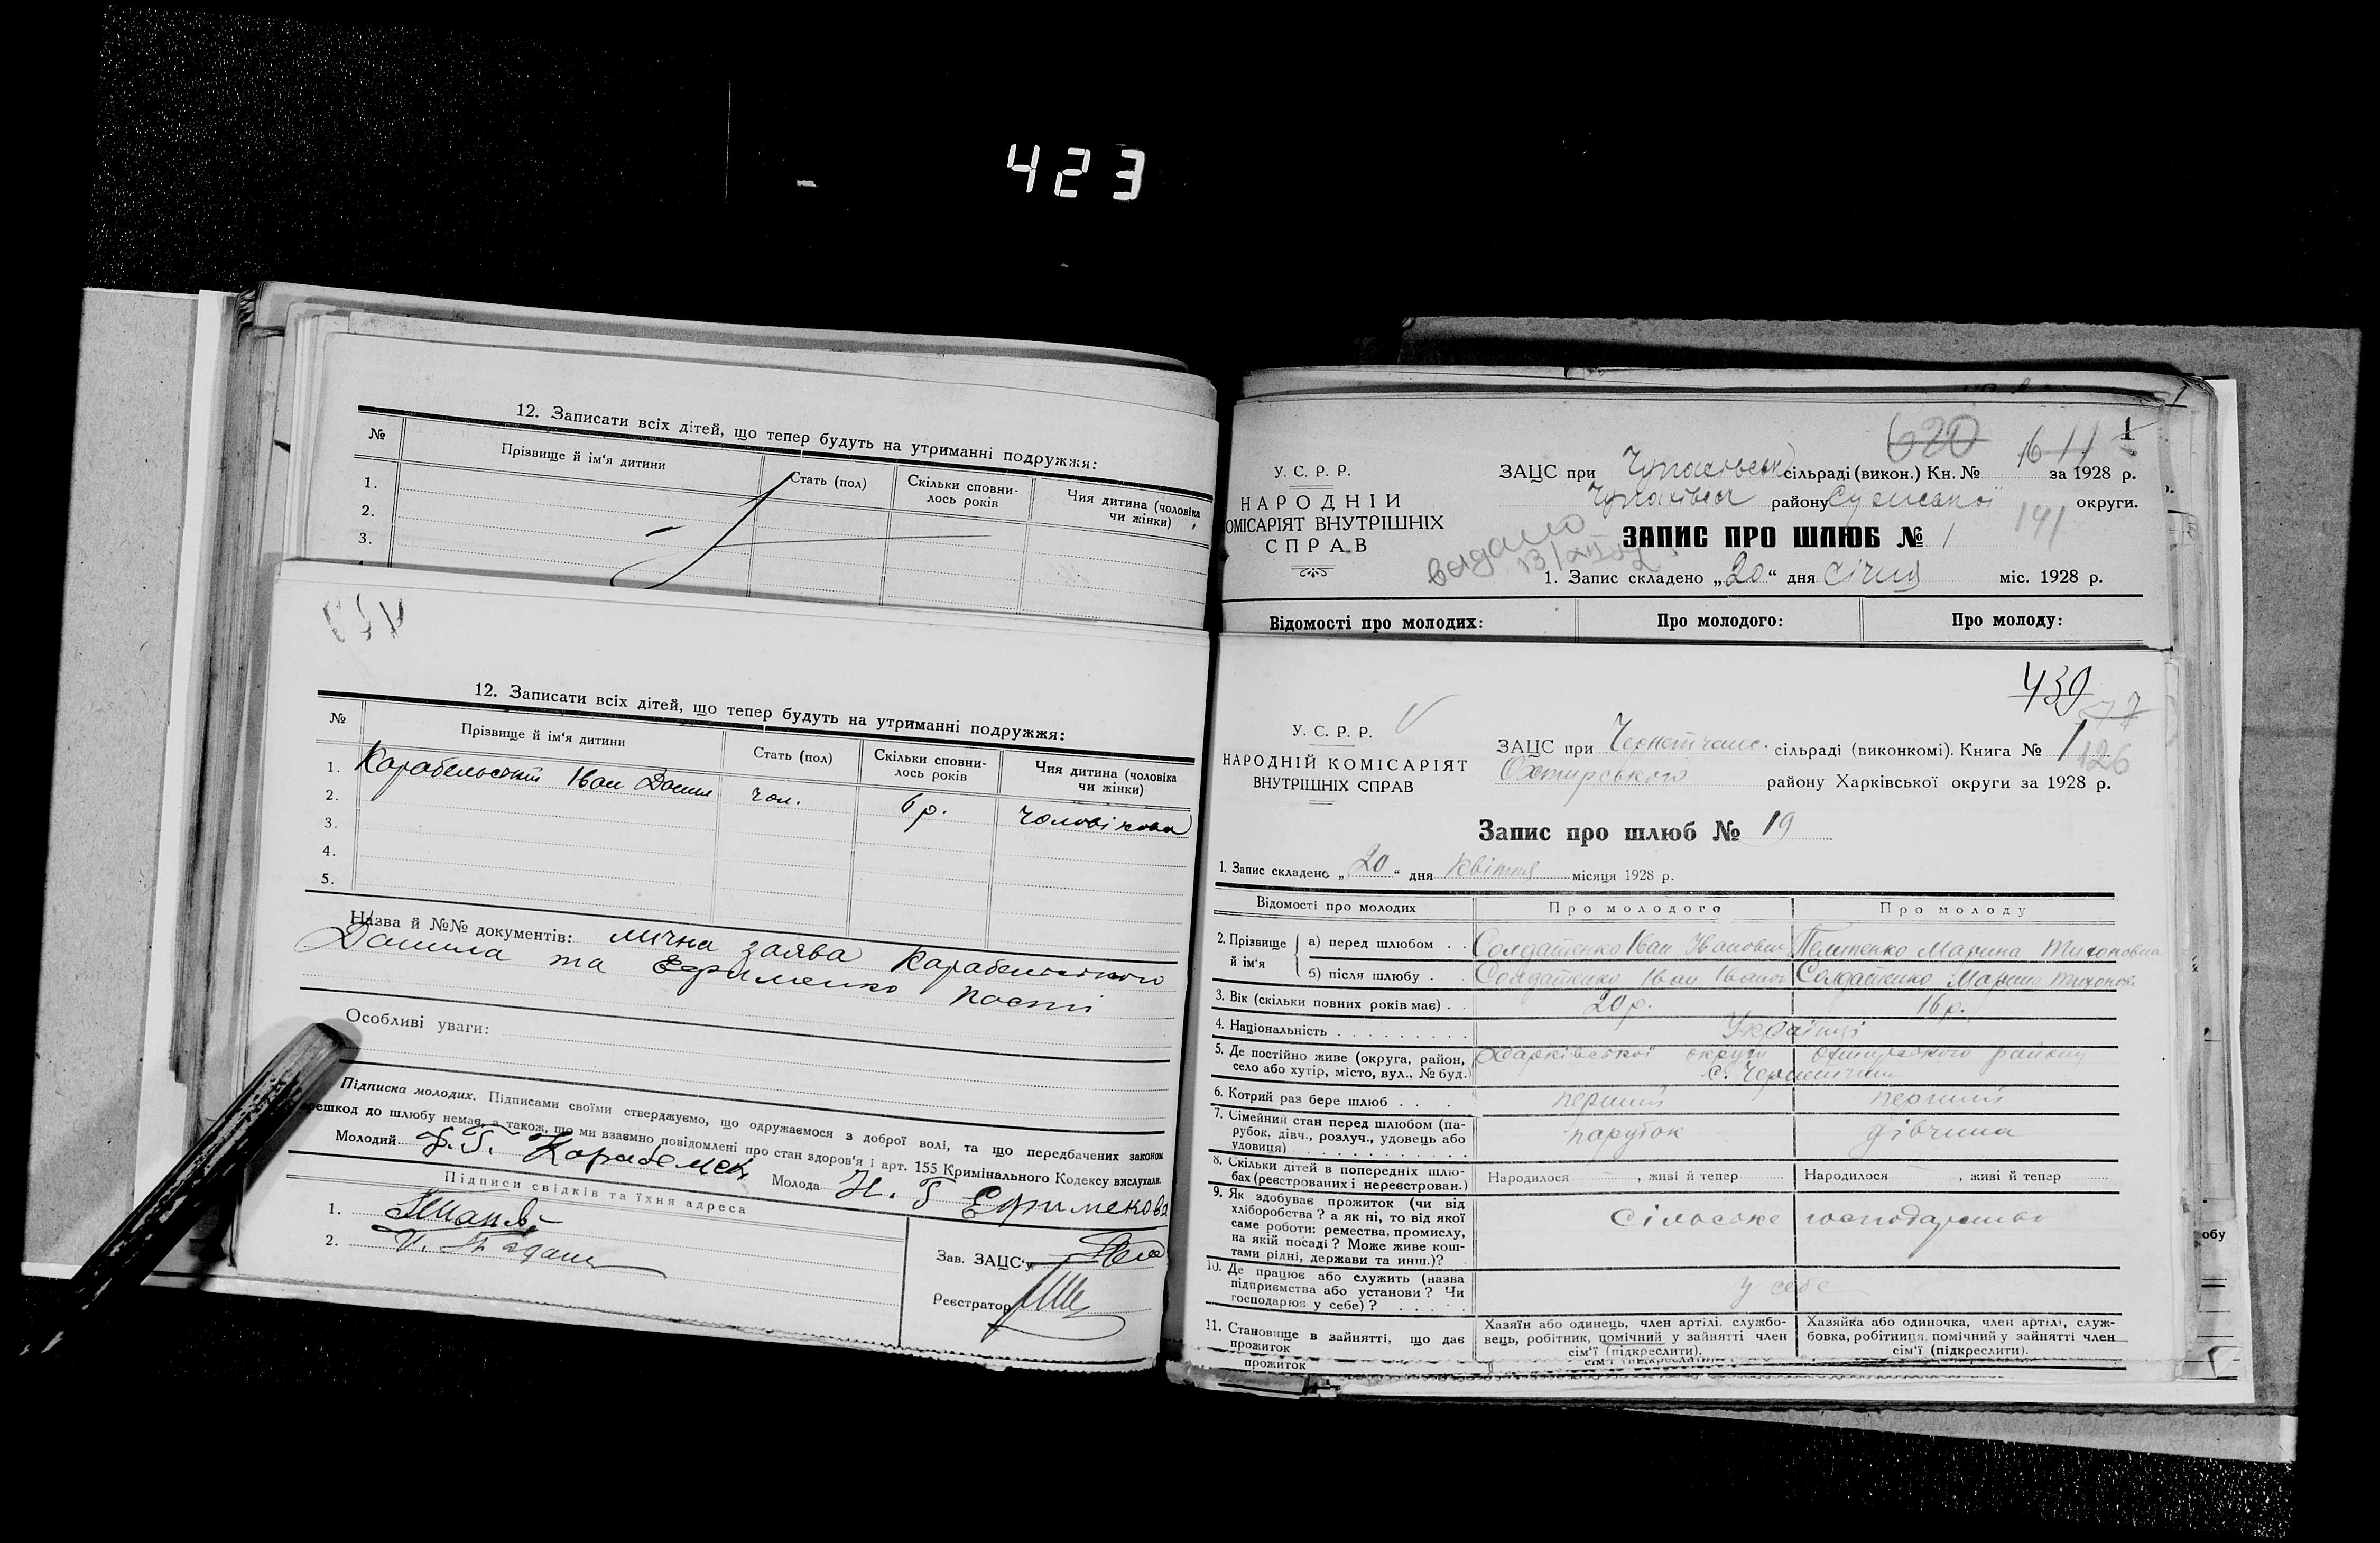 423
12. Записати всіх дітей, що тепер будуть на утриманні подружжя:
№
Прізвище й ім'я дитини
Стать (пол)
Скільки сповни-
лось років
Чия дитина (чоловіка
чи жінки)
1.
2.
3.
12. Записати всіх дітей, що тепер будуть на утриманні подружжя:
№
Прізвище й ім'я дитини
Стать (пол)
Скільки сповни-
лось років
Чия дитина (чоловіка
чи жінки)
1. Іван чол. 6 р. чоловікова
2.
3.
4.
5.
Назва й №№ документів: лична заява
Данила та Ефименко
Особливі уваги:
Підписка молодих. Підписами своїми стверджуємо, що одружаємося з доброї волі, та що передбачених законом
перешкод до шлюбу немає, а також, що ми взаємно повідомлені про стан здоров'я і арт. 155 Кримінального Кодексу вислухали.
Молодий
Молода
Підписи свідків та їхня адреса
1.
2.
Зав. ЗАЦС'у
Реєстратор
У. С. Р. Р.
НАРОДНІЙ
ОМІСАРІЯТ ВНУТРІШНІХ
СПРАВ
620
1611
1
ЗАЦС при сільраді (викон.) Кн. № за 1928 р.
району округи.
141
ЗАПИС ПРО ШЛЮБ № 1
1. Запис складено „20“ дня січня міс. 1928 р.
Відомості про молодих:
Про молодого:
Про молоду:
439
У. С. Р. Р.
НАРОДНІЙ КОМІСАРІЯТ
ВНУТРІШНІХ СПРАВ
ЗАЦС при сільраді (виконкомі). Книга № 1
126
Охтирського району Харківської округи за 1928 р.
Запис про шлюб № 19
1. Запис складено „20“ дня квітня місяця 1928 р.
Відомості про молодих
Про молодого
Про молоду
2. Прізвище й ім'я
а) перед шлюбом . . Солдатенко Іван Марина Тихоновна
б) після шлюбу . Солдатенко Іван Солдатенко Марина
3. Вік (скільки повних років має) . . 20 р. 16 р.
4. Національність . . . . . . . . Українці
5. Де постійно живе (округа, район,
село або хутір, місто, вул., № буд.)
Харківської округи Охтирського району
6. Котрий раз бере шлюб . . . . перший перший
7. Сімейний стан перед шлюбом (па-
рубок, дівч., розлуч., удовець або
удовиця) . . . . . . . . . . .
парубок дівчина
8. Скільки дітей в попередніх шлю-
бах (реєстрованих і нереєстрован.)
Народилося , живі й тепер
Народилося , живі й тепер
9. Як здобуває прожиток (чи від
хліборобства? а як ні, то від якої
саме роботи: ремества, промислу,
на якій посаді? Може живе кош-
тами рідні, держави та инш.)?
Сільське господарство
10. Де працює або служить (назва
підприємства або установи? Чи
господарює у себе)? . . . . .
у себе
11. Становище в зайнятті, що дає
прожиток
Хазяїн або одинець, член артілі, службо-
вець, робітник, помічний у зайнятті член
сім'ї (підкреслити).
Хазяйка або одиночка, член артілі, служ-
бовка, робітниця, помічний у зайнятті член
сім'ї (підкреслити).
прожиток
обу